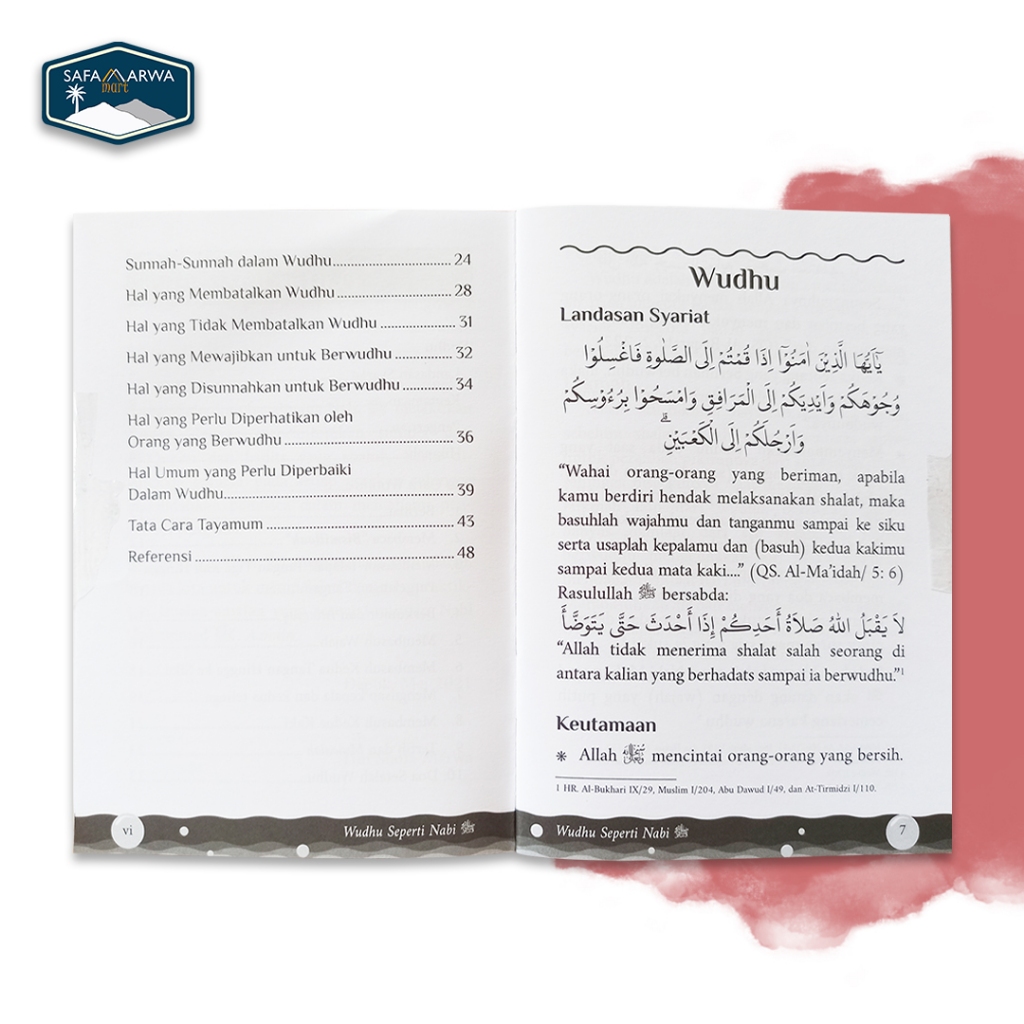 SAFA MARWA
mart
Sunnah-Sunnah dalam Wudhu.................................. 24
Hal yang Membatalkan Wudhu.................................. 28
Hal yang Tidak Membatalkan Wudhu ...................... 31
Hal yang Mewajibkan untuk Berwudhu ................. 32
Hal yang Disunnahkan untuk Berwudhu ............... 34
Hal yang Perlu Diperhatikan oleh
Orang yang Berwudhu ................................................. 36
Hal Umum yang Perlu Diperbaiki
Dalam Wudhu.................................................................. 39
Tata Cara Tayamum ...................................................... 43
Referensi .......................................................................... 48
vi
Wudhu Seperti Nabi ﷺ
Wudhu
Landasan Syariat
يٰٓاَيُّهَا الَّذِيْنَ اٰمَنُوْٓا اِذَا قُمْتُمْ اِلَى الصَّلٰوةِ فَاغْسِلُوْا
وُجُوْهَكُمْ وَاَيْدِيَكُمْ اِلَى الْمَرَافِقِ وَامْسَحُوْا بِرُءُوْسِكُمْ
وَاَرْجُلَكُمْ اِلَى الْكَعْبَيْنِۗ
“Wahai orang-orang yang beriman, apabila
kamu berdiri hendak melaksanakan shalat, maka
basuhlah wajahmu dan tanganmu sampai ke siku
serta usaplah kepalamu dan (basuh) kedua kakimu
sampai kedua mata kaki....” (QS. Al-Ma’idah/ 5: 6)
Rasulullah ﷺ bersabda:
لاَ يَقْبَلُ اللهُ صَلاَةَ أَحَدِكُمْ إِذَا أَحْدَثَ حَتَّى يَتَوَضَّأَ
“Allah tidak menerima shalat salah seorang di
antara kalian yang berhadats sampai ia berwudhu.”¹
Keutamaan
❋ Allah mencintai orang-orang yang bersih.
1 HR. Al-Bukhari IX/29, Muslim I/204, Abu Dawud I/49, dan At-Tirmidzi I/110.
Wudhu Seperti Nabi ﷺ
7